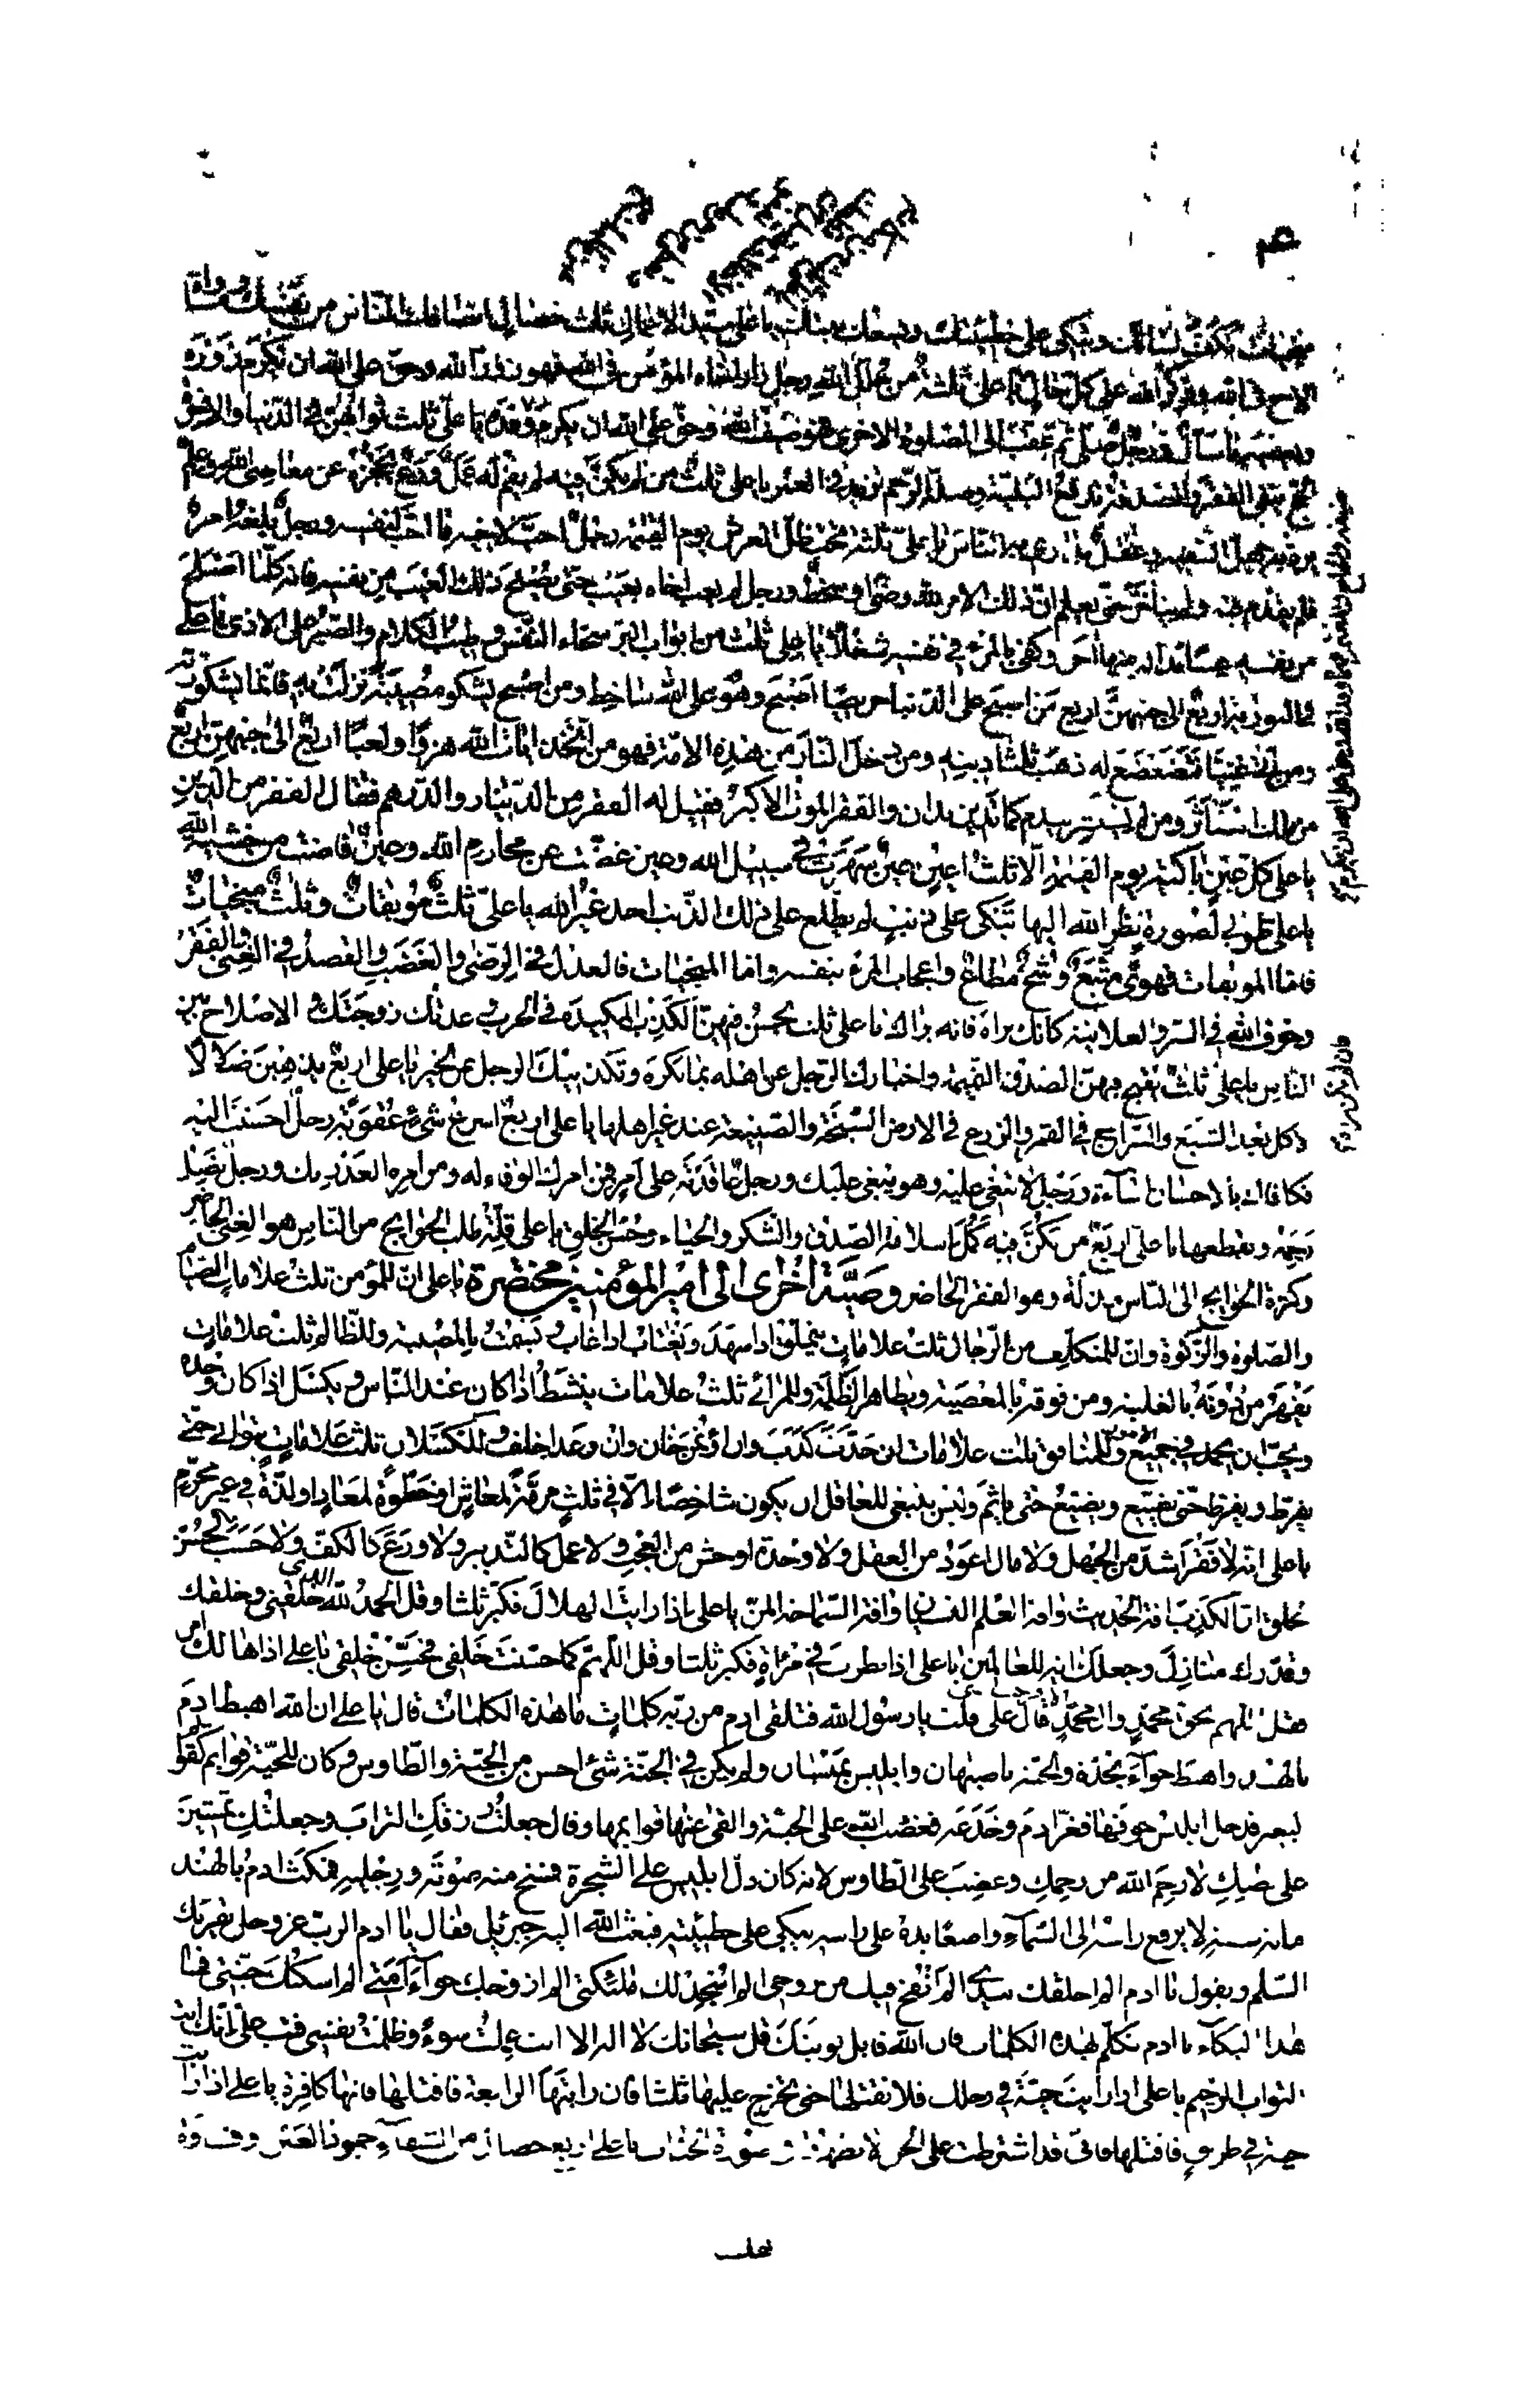 منجيات تكفّ لسانك وتبكي على خطيئتك ويسعك بيتك يا علي سيد الاعمال ثلث خصال انصافك الناس من نفسك ومساواة
الاخ في الله وذكر الله على كل حال يا علي ثلثة من حلل الله رجل زار اخاه المؤمن في الله فهو زور الله وحق على الله ان يكرم زوره
ويعطيه ما سأل ورجل صلّى ثم عقّب الى الصلوة الاخرى فهو ضيف الله وحق على الله ان يكرم ضيفه يا علي ثلث ثوابهنّ في الدنيا والاخرة
الحج ينفي الفقر والصدقة تدفع البليّة وصلة الرحم تزيد في العمر يا علي ثلث من لم يكنّ فيه لم يقم له عمل ورع يحجزه عن معاصي الله وعلم
يردّ به جهل السفيه وعقل يداري به الناس يا علي ثلثة تحت ظل العرش يوم القيمة رجل احبّ لاخيه ما احبّ لنفسه ورجل بلغه امر
فلم يقدم فيه ولم يتأخر حتى يعلم انّ ذلك الامر لله رضى او سخط ورجل لم يعب اخاه بعيب حتى يصلح ذلك العيب من نفسه فانه كلما اصلح
من نفسه عيبا بدا له منها اخر وكفى بالمرء في نفسه شغلا يا علي ثلث من ابواب البر سخاء النفس وطيب الكلام والصبر على الاذى يا علي
في التورية اربع الى جنبهنّ اربع من اصبح على الدنيا حريصا اصبح وهو على الله ساخط ومن اصبح يشكو مصيبة نزلت به فانما يشكو ربه
ومن اتى غنيا فتضعضع له ذهب ثلثا دينه ومن دخل النار من هذه الامة فهو من اتخذ ايات الله هزوا ولعبا اربع الى جنبهن اربع
من ملك استأثر ومن لم يستشر يندم كما تدين تدان والفقر الموت الاكبر فقيل له الفقر من الدينار والدرهم فقال الفقر من الدين
يا علي كل عين باكية يوم القيمة الا ثلث اعين عين سهرت في سبيل الله وعين غضّت عن محارم الله وعين فاضت من خشية الله
يا علي طوبى لصورة نظر الله اليها تبكي على ذنب لم يطّلع على ذلك الذنب احد غير الله يا علي ثلث موبقات وثلث منجيات
فاما الموبقات فهوى متّبع وشحّ مطاع واعجاب المرء بنفسه واما المنجيات فالعدل في الرضى والغضب والقصد في الغنى والفقر
وخوف الله في السر والعلانية كانك تراه فانه يراك يا علي ثلث يحسن فيهنّ الكذب المكيدة في الحرب وعدتك زوجتك والاصلاح بين
الناس يا علي ثلث يقبح فيهنّ الصدق النميمة واخبارك الرجل عن اهله بما يكره وتكذيبك الرجل عن الخير يا علي اربع يذهبن ضلالا
الاكل بعد الشبع والسراج في القمر والزرع في الارض السبخة والصنيعة عند غير اهلها يا علي اربع اسرع شيء عقوبة رجل احسنت اليه
فكافاك بالاحسان اساءة ورجل لا تبغي عليه وهو يبغي عليك ورجل عاقدته على امر فمن امرك الوفاء له ومن امره الغدر بك ورجل يصل
رحمه ويقطعها يا علي اربع من تكنّ فيه كمل اسلامه الصدق والشكر والحياء وحسن الخلق يا علي قلّة طلب الحوائج من الناس هو الغنى الحاضر
وكثرة الحوائج الى الناس مذلّة وهو الفقر الحاضر وصيّة اخرى الى امير المؤمنين مختصرة يا علي انّ للمؤمن ثلث علامات الصيام
والصلوة والزكوة وان للمتكلّف من الرجال ثلث علامات يتملّق اذا شهد ويغتاب اذا غاب ويشمت بالمصيبة وللظالم ثلث علامات
يقهر من دونه بالغلبة ومن فوقه بالمعصية ويظاهر الظلمة وللمرائي ثلث علامات ينشط اذا كان عند الناس ويكسل اذا كان وحده
ويحبّ ان يحمد في جميع الامور وللمنافق ثلث علامات ان حدّث كذب وان اؤتمن خان وان وعد اخلف وللكسلان ثلث علامات يتوانى حتى
يفرّط ويفرّط حتى يضيّع ويضيّع حتى ياثم وليس ينبغي للعاقل ان يكون شاخصا الا في ثلث مرمّة لمعاش او خطوة لمعاد او لذّة في غير محرّم
يا علي انه لا فقر اشدّ من الجهل ولا مال اعود من العقل ولا وحدة اوحش من العجب ولا عمل كالتدبير ولا ورع كالكفّ ولا حسب كحسن
الخلق انّ الكذب افة الحديث وافة العلم النسيان وافة السماحة المنّ يا علي اذا رايت الهلال فكبّر ثلثا وقل الحمد لله الذي خلقني وخلقك
وقدّرك منازل وجعلك اية للعالمين يا علي اذا نظرت في مرآة فكبّر ثلثا وقل اللّهمّ كما حسّنت خَلقي فحسّن خُلقي يا علي اذا هالك امر
فقل اللهم بحق محمّد وال محمّد قال علي قلت يا رسول الله فتلقى ادم من ربّه كلمات ما هذه الكلمات قال يا علي ان الله اهبط ادم
بالهند واهبط حوّاء بجدّة والحيّة باصبهان وابليس بميسان ولم يكن في الجنّة شيء احسن من الحيّة والطاوس وكان للحيّة قوايم كقوايم
البعير فدخل ابليس جوفها فغرّ ادم وخدعه فغضب الله على الحيّة والقى عنها قوايمها وقال جعلت رزقك التراب وجعلتك تمشين
على بطنك لا رحم الله من رحمك وغضب على الطاوس لانه كان دلّ ابليس على الشجرة فمسخ منه صوته ورجليه فمكث ادم بالهند
ماية سنة لا يرفع راسه الى السماء واضعا يده على راسه يبكي على خطيئته فبعث الله اليه جبرئيل فقال يا ادم الرب عز وجل يقريك
السلم ويقول يا ادم الم اخلقك بيدي الم انفخ فيك من روحي الم اسجد لك ملئكتي الم ازوجك حوّاء امتي الم اسكنك جنّتي فما
هذا البكاء يا ادم تكلّم بهذه الكلمات فان الله قابل توبتك قل سبحانك لا اله الا انت عملت سوءً وظلمت نفسي فتب علي انّك انت
التواب الرحيم يا علي اذا رايت حيّة في رحلك فلا تقتلها حتى تخرج عليها ثلثا فان رايتها الرابعة فاقتلها فانها كافرة يا علي اذا رايت
حية في طريق فاقتلها فاني قد اشترطت على الجن الا يظهروا في صورة الحيّات يا علي اربع خصال من الشقاء جمود العين وقسوة